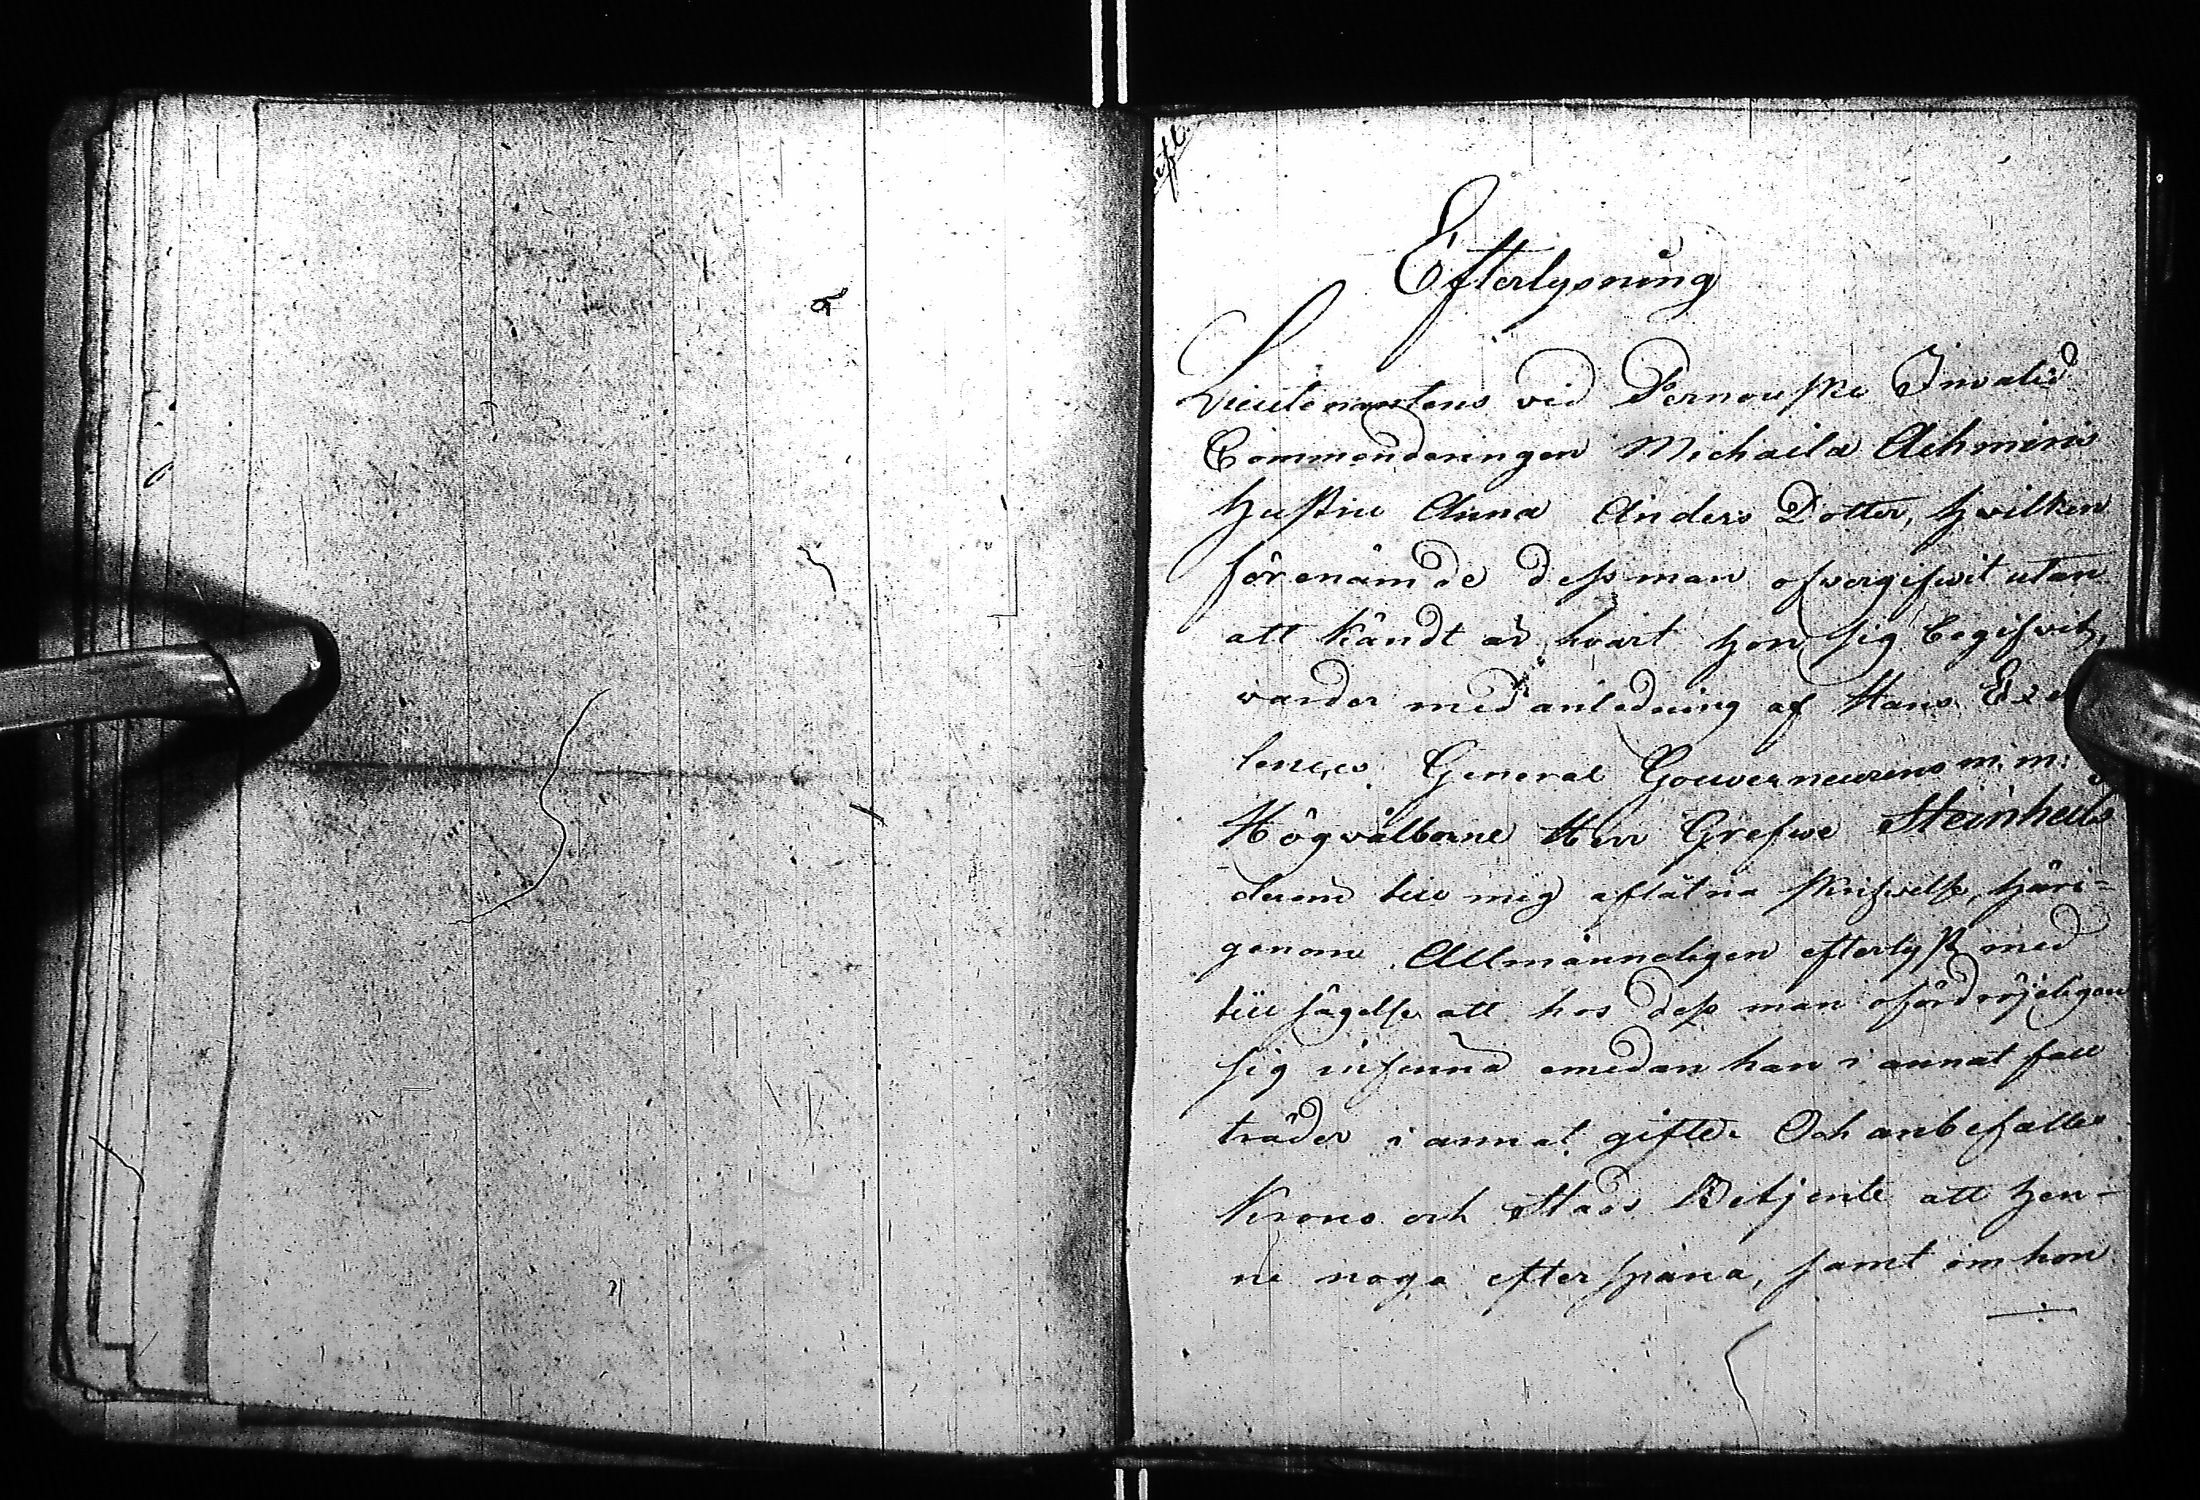 Efterlysning
Lieutenantens vid Pernouska Invalid
Commenderingen Michaila Achmins
Hustru Anna Anders Dotter, hvilken
förenämde dess man öfvergifvit utan
att kändt är hvart hon sig begifvit,
varder med anledning af Hans Exel
lences General Gouverneurens m. m.
Högvälborne Herr Grefve Steinheils
derom till mig aflåtna skrifvelse, häri=
genom Allmänneligen efterlyst med
tillsägelse att hos dess man ofördröjeligen
sig infinna emedan han i annat fall
träder i annat gifte. Och anbefalles
Krono och Stads Betjente att hen-
ne noga efterspana, samt om hon